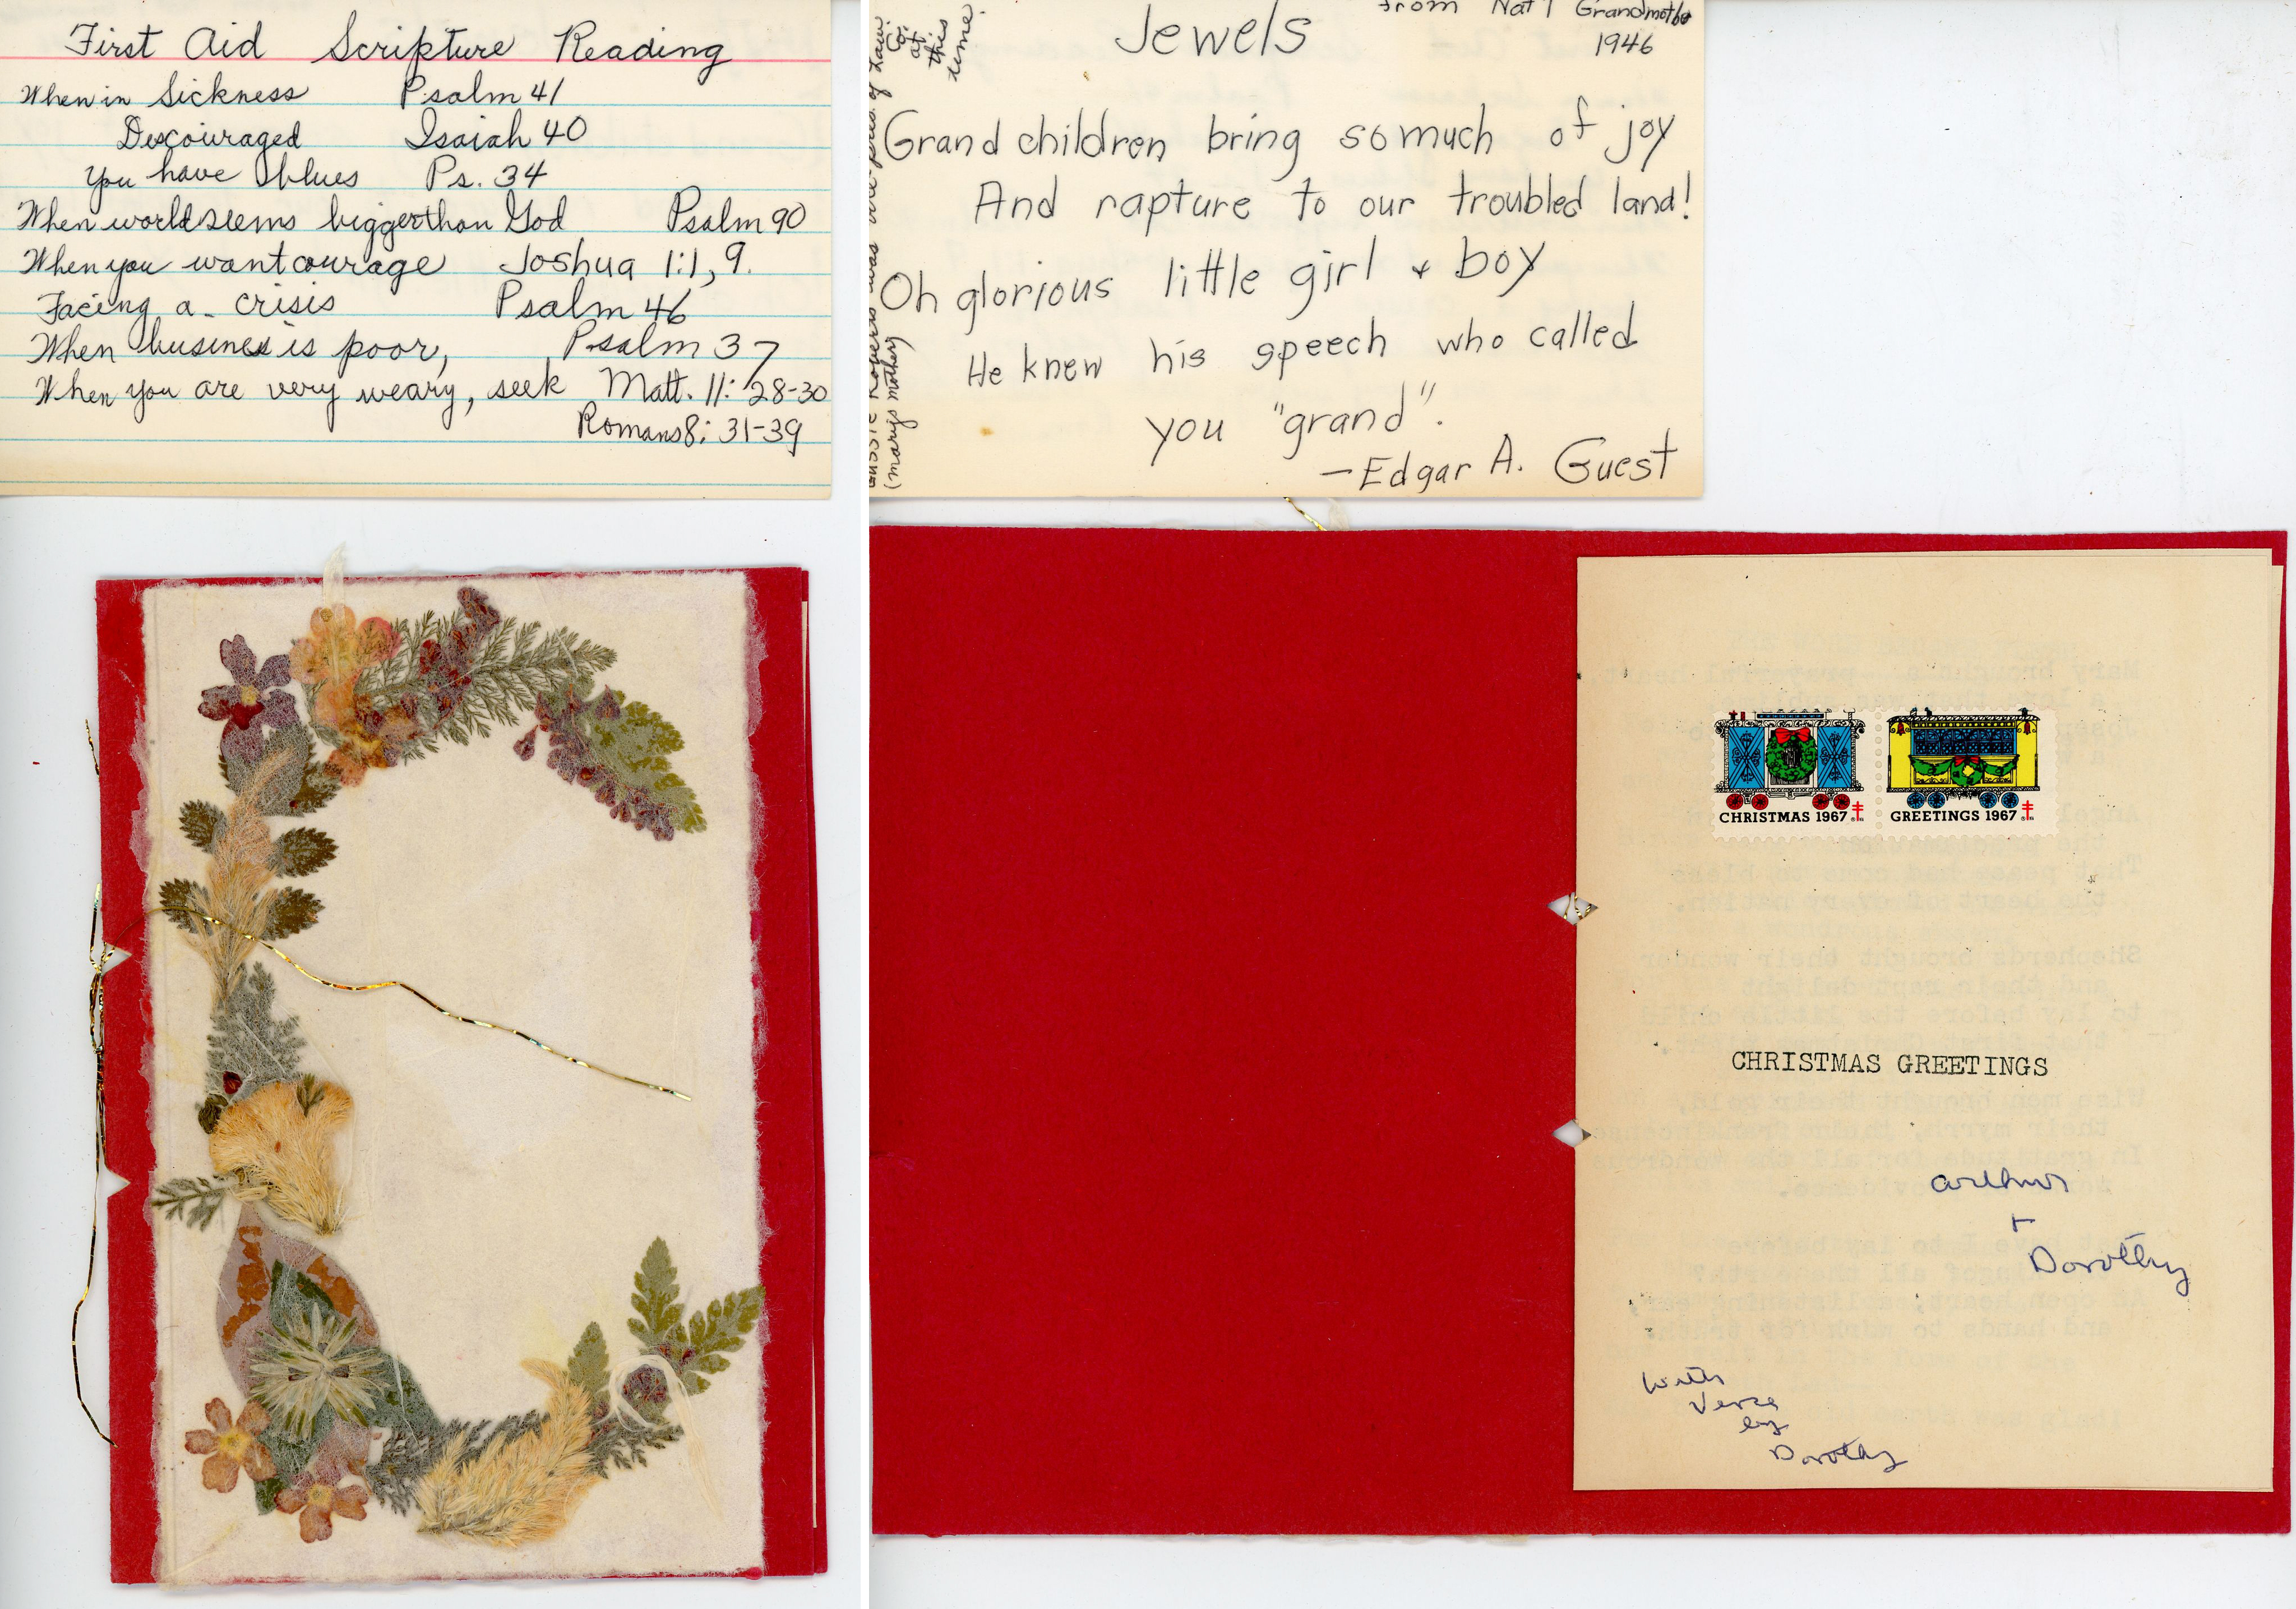 First Aid Scripture Reading
When in Sickness Psalm 41
Discouraged Isaiah 40
You have blues Ps. 34
When world seems bigger than God Psalm 90
When you want courage Joshua 1:1, 9.
Facing a crisis Psalm 46
When business is poor, Psalm 37
When you are very weary, seek Matt. 11: 28-30
Romans 8: 31-39
from Nat'l Grandmother
1946
Jewels
Grand children bring so much of joy
And rapture to our troubled land!
Oh glorious little girl & boy
He knew his speech who called
you "grand".
— Edgar A. Guest
was the pres. of Law.
Co.
at
this
time.
(Mary's mother)
CHRISTMAS 1967
GREETINGS 1967
CHRISTMAS GREETINGS
Arthur
+
Dorothy
with
Verse
by
Dorothy